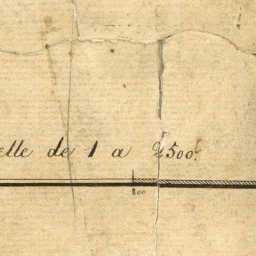 elle de 1 a 2500.
200